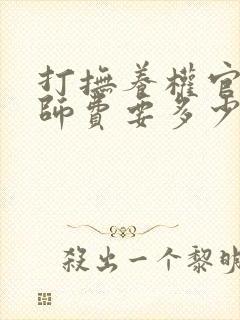 打撫養權官
師費要多少
殺出一个黎明